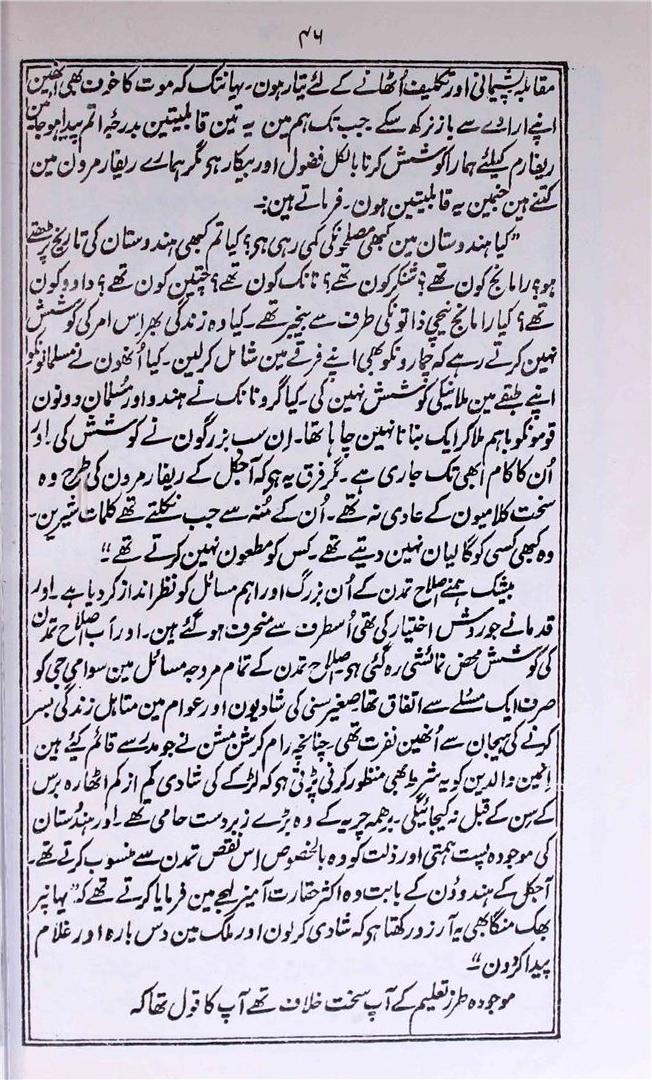 ۴۶
مقابلہ پشیمانی اور تکلیف اُٹھانے کے لئے تیار ہون۔ یہانتک کہ موت کا خوف بھی اُنھین
اپنے ارادے سے باز نہ رکھ سکے۔ جب تک ہم مین یہ تین قابلیتین بدرجۂ اتم پیدا ہو جائین
ریفارم کیلئے ہمارا کوشش کرنا بالکل فضول اور بیکار ہی مگر ہمارے ریفارمرون مین
کتنے ہین جنمین یہ قابلیتین ہون۔ فرماتے ہین:۔
”کیا ہندوستان مین کبھی مصلحونکی کمی رہی ہو؟ کیا تم کبھی ہندوستان کی تاریخ پڑھتے
ہو؟ رامانج کون تھے؟ شنکر کون تھے؟ نانک کون تھے؟ چتین کون تھے؟ دادو کون
تھے؟ کیا رامانج نیچی ذاتونکی طرف سے بیخبر تھے۔ کیا وہ زندگی بھر اِس امر کی کوشش
نہین کرتے رہے کہ چمارونکو بھی اپنے فرقے مین شامل کرلین۔ کیا اُنھون نے مسلمانونکو
اپنے طبقے مین ملانیکی کوشش نہین کی۔ کیا گرو نانک نے ہندو اور مُسلمان دونون
قومونکو باہم ملا کر ایک بنانا نہین چاہا تھا۔ اِن سب بزرگون نے کوشش کی اور
اُن کا کام ابھی تک جاری ہے۔ مگر فرق یہ ہو کہ آجکل کے ریفارمرون کی طرح وہ
سخت کلامیون کے عادی نہ تھے۔ اُن کے مُنہ سے جب نکلتے تھے کلمات شیرین۔
وہ کبھی کسی کو گالیان نہین دیتے تھے۔ کس کو مطعون نہین کرتے تھے“
بیشک ہمنے اصلاح تمدن کے اُن بزرگ اور اہم مسائل کو نظر انداز کر دیا ہے۔ اور
قدما نے جو روش اختیار کی تھی اُسطرف سے منحرف ہو گئے ہین۔ اور اَب اصلاح تمدن
کی کوشش محض نمائشی رہ گئی ہو۔ اصلاح تمدن کے تمام مروجہ مسائل مین سوامی جی کو
صرف ایک مسئلے سے اتفاق تھا صغیر سنی کی شادیون اور عوام مین متاہل زندگی بسر
کرنے کی ہیجان سے اُنھین نفرت تھی۔ چنانچہ رام کرشن مشن نے جو مدرسے قائم کیئے ہین
اِنمین والدین کو یہ شرط بھی منظور کرنی پڑتی ہو کہ لڑکے کی شادی کم از کم اٹھارہ برس
کے سِن کے قبل نہ کیجائیگی۔ برھمہ چریہ کے وہ بڑے زبردست حامی تھے۔ اور ہندُستان
کی موجودہ پست ہمتی اور ذلت کو وہ بالخصوص اِس نقص تمدن سے منسوب کرتے تھے۔
آجکل کے ہندوؤن کے بابت وہ اکثر حقارت آمیز لہجے مین فرمایا کرتے تھے کہ ”یہانپر
بھک منگا بھی یہ آرزو رکھتا ہو کہ شادی کرلون اور ملک مین دس بارہ اور غلام
پیدا کردون“
موجودہ طرز تعلیم کے آپ سخت خلاف تھے آپ کا قول تھا کہ